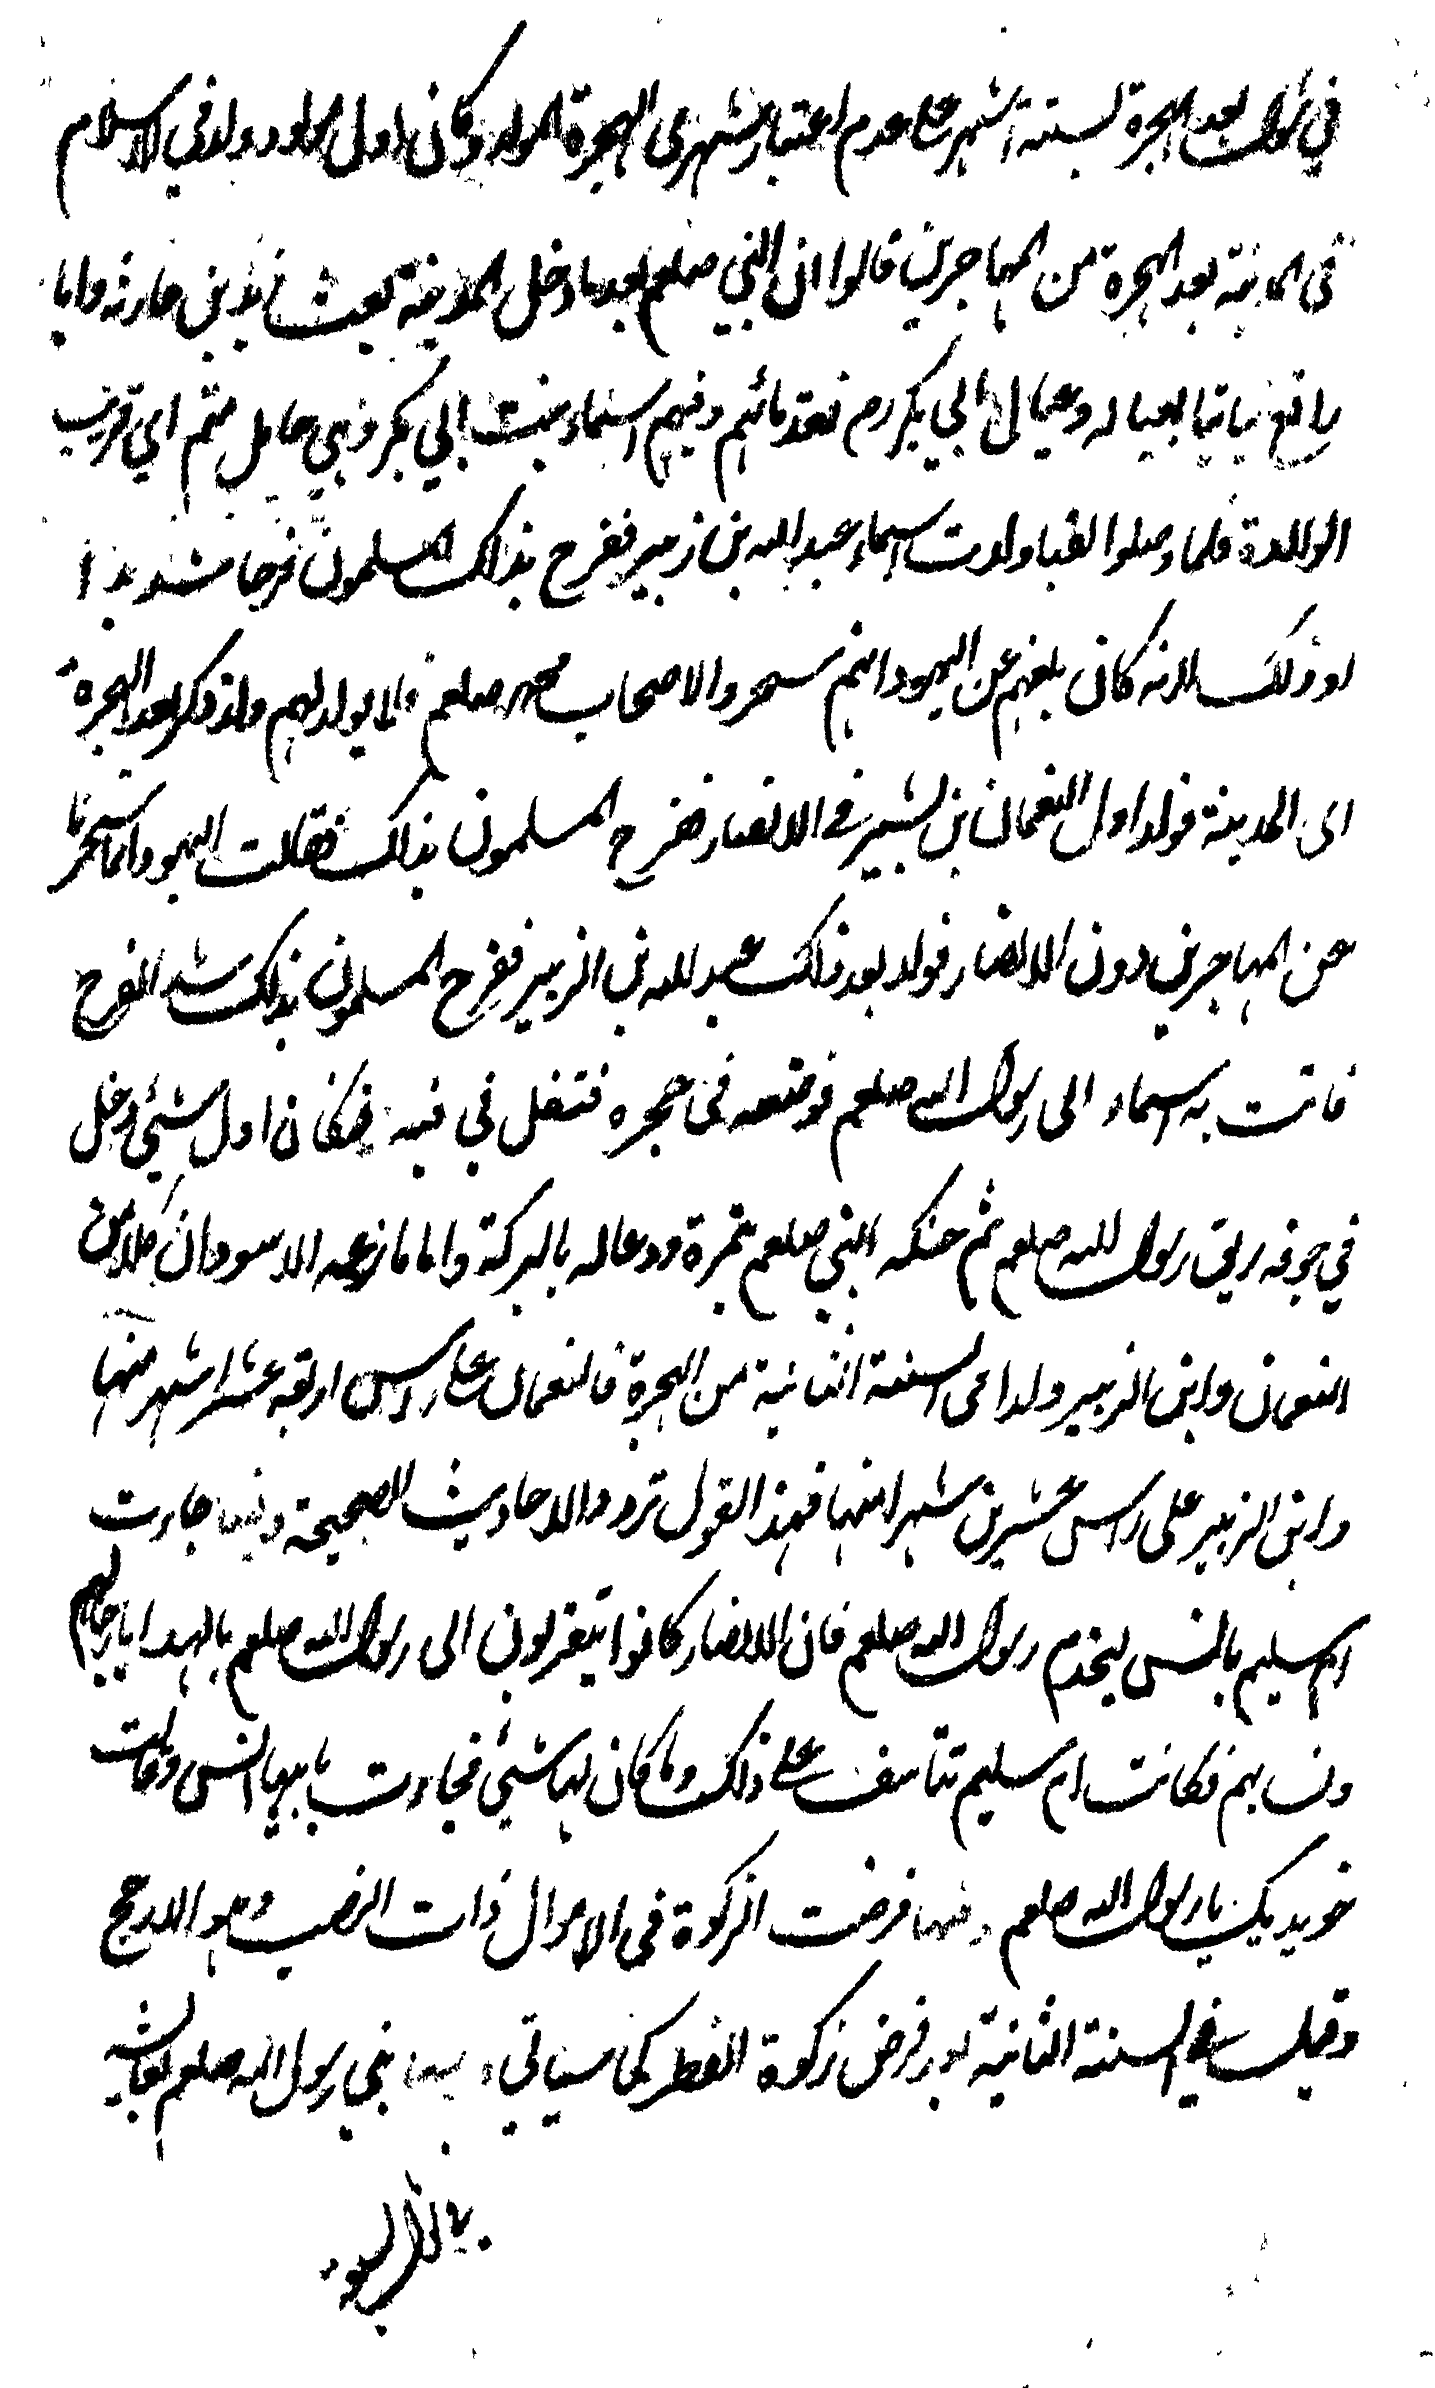 في شوال بعد الهجرة لستة اشهر على عدم اعتبار شهرى الهجرة المولد وكان اول مولود ولد في الاسلام
فى المدينة بعد الهجرة من المهاجرين قالوا ان النبي صلعم بعد ما دخل المدينة بعث زيد بن حارثه وابا
رافع لياتيا بعياله وعيال ابي بكر رم فقدما بهم وفيهم اسماء بنت ابي بكر وهي حامل متم اي قريب
الولادة فلما وصلوا القبا ولدت اسماء عبد الله بن زبير ففرح بذالك المسلمون فرحا شديدا
وذلك لانه كان بلغهم عن اليهود انهم سحروا لاصحاب محمد صلعم ولا يولد لهم ولد ذكر بعد الهجرة
الى المدينة فولد اول النعمان بن بشير في الانصار ففرح المسلمون بذالك فقالت اليهود انما سحرنا
عن المهاجرين دون الانصار فولد بعد ذلك عبد الله بن الزبير ففرح المسلمون بذلك شد الفرح
فاتت به اسماء الى رسول الله صلعم فوضعه فى حجره فتفل في فيه فكان اول شيئ دخل
في جوفه ريق رسول الله صلعم ثم حنكه النبي صلعم بتمرة ودعا له بالبركة واما ما زعمه الاسودان كلا من
النعمان وابن الزبير ولدا فى السنة الثانية من الهجرة فالنعمان على راس اربعة عشر شهر منها
وابن الزبير على راس عشرين شهرا منها فهذا القول ترده الاحاديث الصحيحة وفيها جاءت
ام سليم بانس ليخدم رسول الله صلعم فان الانصار كانوا يتقربون الى رسول الله صلعم بالهدايا رجالهم
ونساءهم فكانت ام سليم تتأسف على ذلك وما كان لها شيئ فجاءت بابنها انس وقالت
خويدمك يا رسول الله صلعم وفيها فرضت الزكوة فى الاموال ذات النصب وهو الارجح
وقيل في السنة الثانية بعد فرض زكوة الفطر كما سياتي وفيها بنى رسول الله صلعم بعائشه